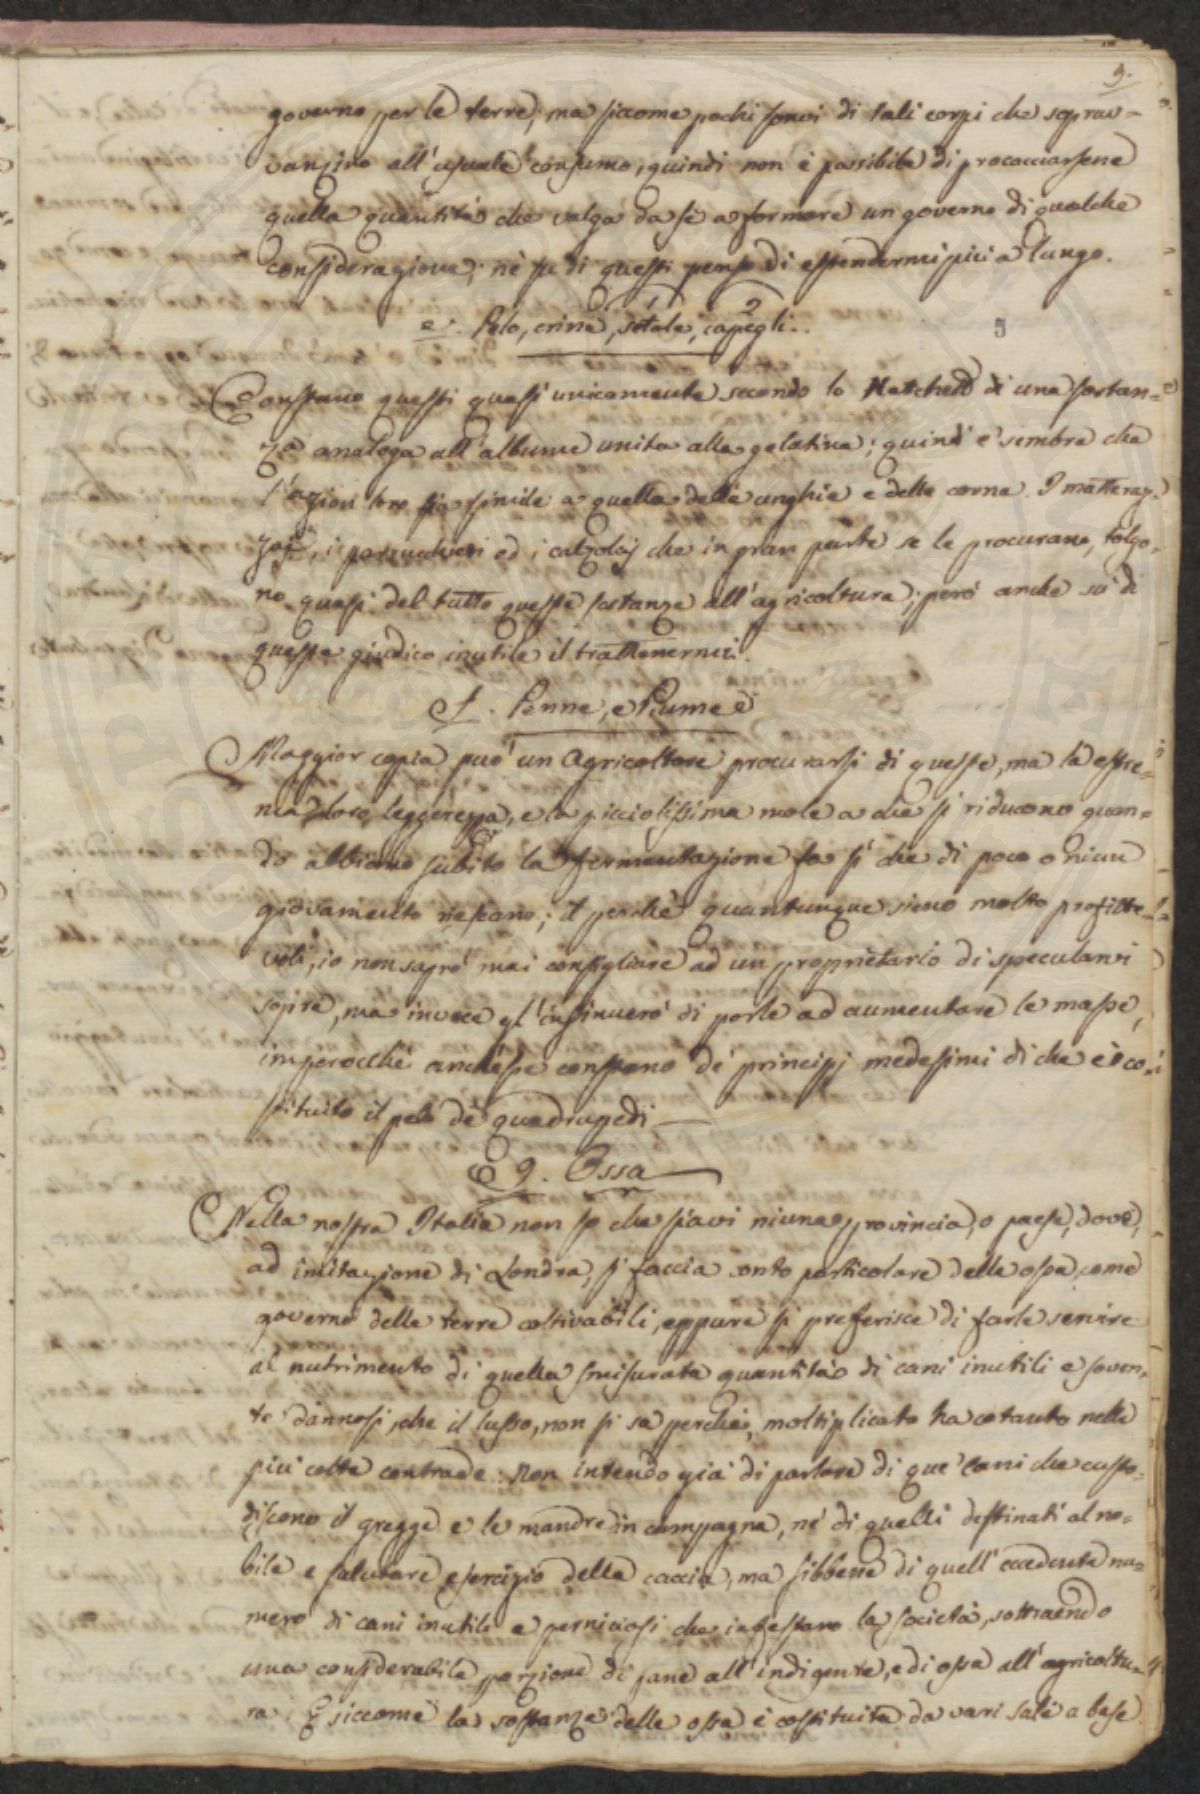 9.
governo per le terre; ma siccome pochi sonvi di tali corpi che soprav=
vanzino all'usuale consumo, quindi non è possibile di procacciarsene
quella quantità che valga da sè a formare un governo di qualche
considerazione; nè su di questi penso di estendermi più a lungo.
1 2
e. Pelo, crine, setole, capegli.
5
Constano questi quasi unicamente secondo lo Hatchett di una sostan=
za analoga all'albume unita alla gelatina; quindi e' sembra che
l'azion loro sia simile a quella delle unghie e delle corna. I matteraz=
zaj, i parrucchieri ed i calzolaj che in gran parte se le procurano, tolgo=
no quasi del tutto queste sostanze all'agricoltura; però anche su di
queste giudico inutile il trattenermi.
f. Penne, e Piume
Maggior copia può un Agricoltore procurarsi di queste, ma la estre=
ma loro leggerezza, e la picciolissima mole a che si riducono quan=
do abbiano subito la fermentazione fa sì che di poco o niun
giovamento riescano; il perchè quantunque sieno molto profitte=
voli, io non saprò mai consigliare ad un proprietario di specularvi
sopra, ma invece gl'insinuerò di porle ad aumentare le masse,
imperocchè anch'esse constano de' principj medesimi di che è co=
stituito il pelo de' quadrupedi —
g. Ossa
Nella nostra Italia non so che siavi niuna provincia, o paese, dove,
ad imitazione di Londra, si faccia conto particolare delle ossa come
governo delle terre coltivabili, eppure si preferisce di farle servire
al nutrimento di quella smisurata quantità di cani inutili e soven=
te dannosi, che il lusso, non si sa perchè, moltiplicato ha cotanto nelle
più colte contrade. Non intendo già di parlare di que' cani che custo=
discono il gregge e le mandre in campagna, nè di quelli destinati al no=
bile e salutare esercizio della caccia, ma sibbene di quell'eccedente nu=
mero di cani inutili e perniciosi che infestano la società, sottraendo
una considerabile porzione di pane all'indigente, e di ossa all'agricoltu=
ra. E siccome la sostanza delle ossa è costituita da varj sali a base